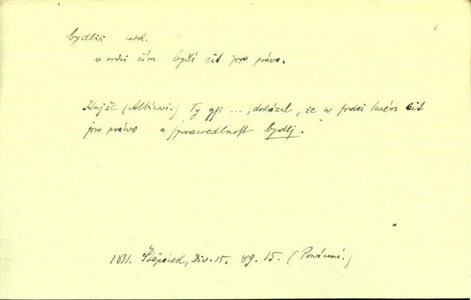 bydliti nedok.
v srdci čím bydlí cit pro právo.
Kníže (Albinmi.) Ty gsi ..., dokázal, že w srdci twém cit
pro práwo a sprawedlnost bydlj.
1831. Štěpánek, Div. 15. 89. 15. (Poznámí.)